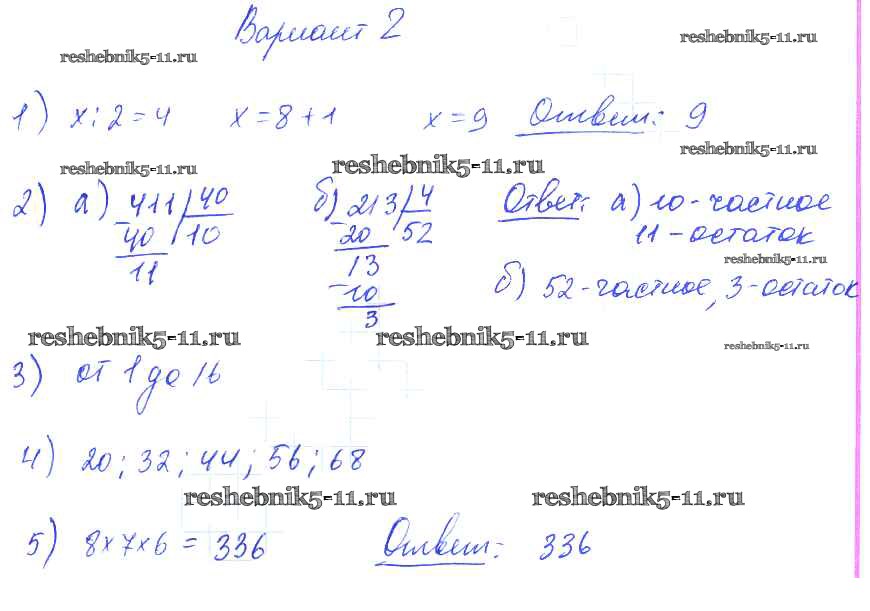 Вариант 2
reshebnik5-11.ru
reshebnik5-11.ru
1) x : 2 = 4 x = 8 + 1 x = 9 Ответ: 9
reshebnik5-11.ru
reshebnik5-11.ru
reshebnik5-11.ru
2) а) 411 40 б) 213 4 Ответ: а) 10 - частное
- 40 10 - 20 52 11 - остаток
reshebnik5-11.ru
11 13 б) 52 - частное, 3 - остаток
- 10
3
reshebnik5-11.ru
reshebnik5-11.ru
reshebnik5-11.ru
3) от 1 до 16
4) 20; 32; 44; 56; 68
reshebnik5-11.ru
reshebnik5-11.ru
5) 8 × 7 × 6 = 336 Ответ: 336